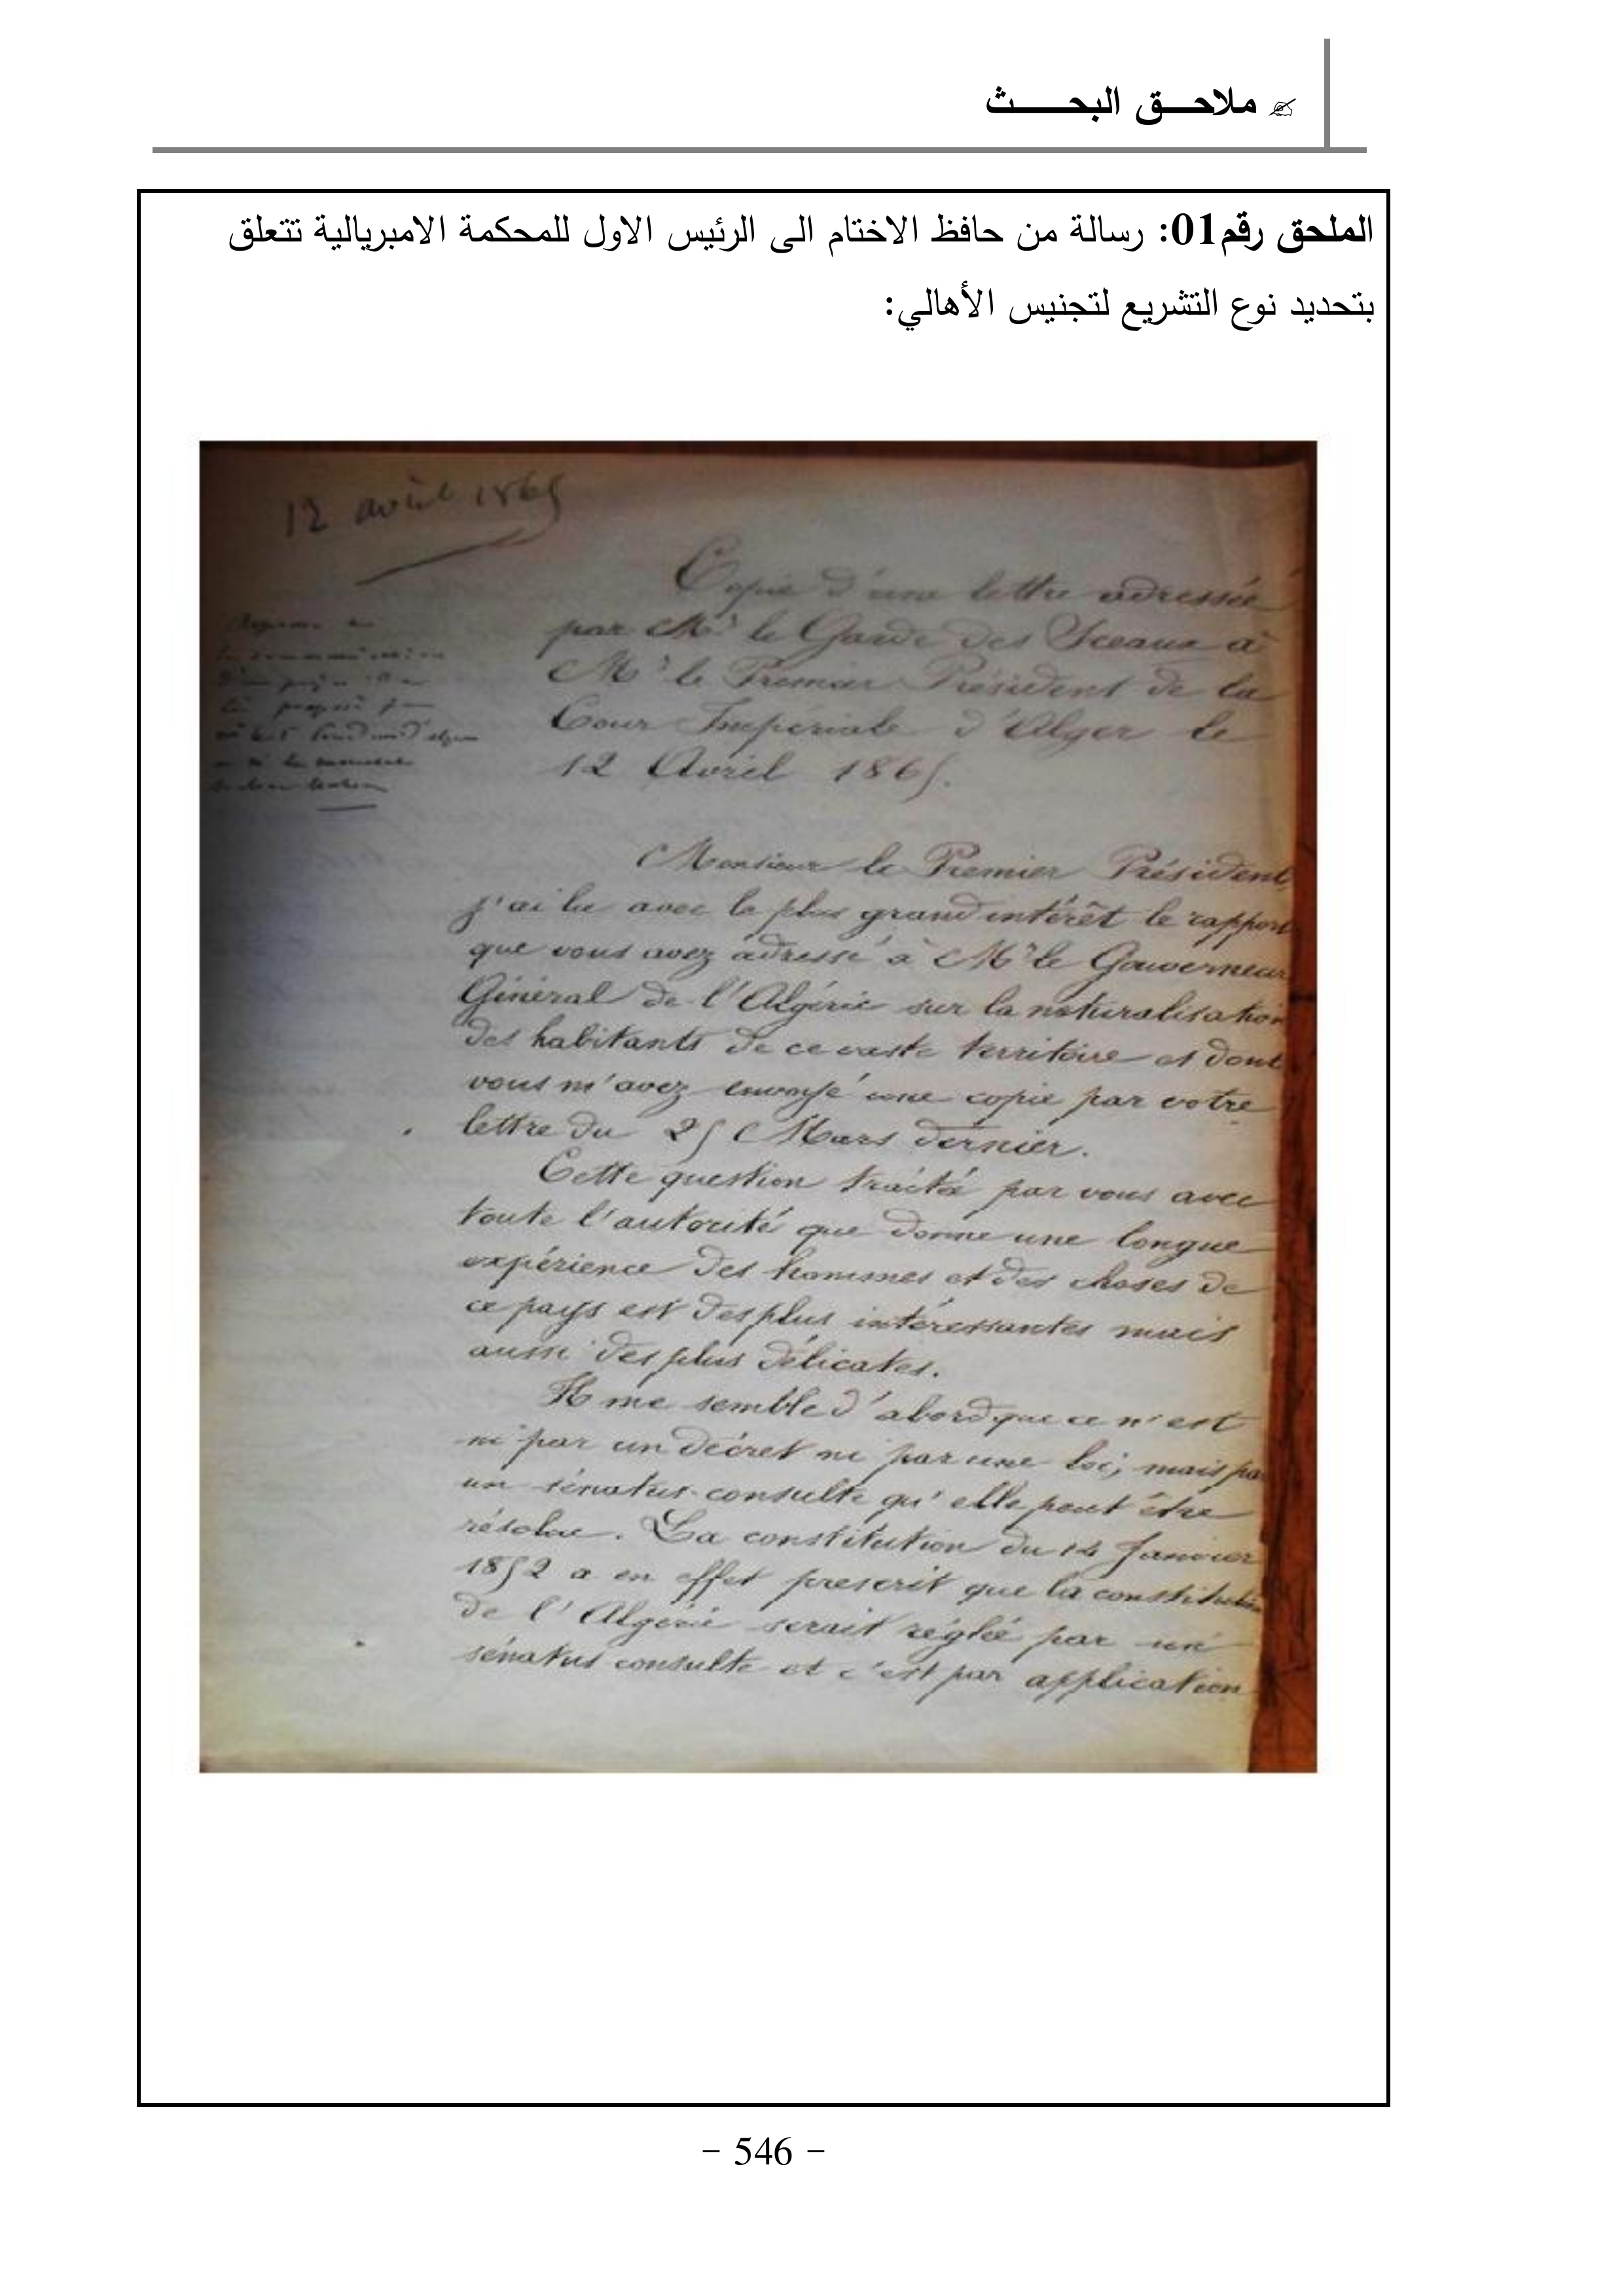 ملاحـــق البحـــــث
الملحق رقم01: رسالة من حافظ الاختام الى الرئيس الاول للمحكمة الامبريالية تتعلق
بتحديد نوع التشريع لتجنيس الأهالي:
12 avril 1865
Copie d'une lettre adressée
par Mr le Garde des Sceaux à
Mr le Premier Président de la
Cour Impériale d'Alger le
12 Avril 1865.
Monsieur le Premier Président,
j'ai lu avec le plus grand intérêt le rapport
que vous avez adressé à Mr le Gouverneur
Général de l'Algérie sur la naturalisation
des habitants de ce vaste territoire et dont
vous m'avez envoyé une copie par votre
lettre du 25 Mars dernier.
Cette question traitée par vous avec
toute l'autorité que donne une longue
expérience des hommes et des choses de
ce pays est des plus intéressantes mais
aussi des plus délicates.
Il me semble d'abord que ce n'est
ni par un décret ni par une loi, mais par
un sénatus-consulte qu'elle peut être
résolue. La constitution du 14 Janvier
1852 a en effet prescrit que la constitution
de l'Algérie serait réglée par un
sénatus consulte et c'est par application
- 546 -